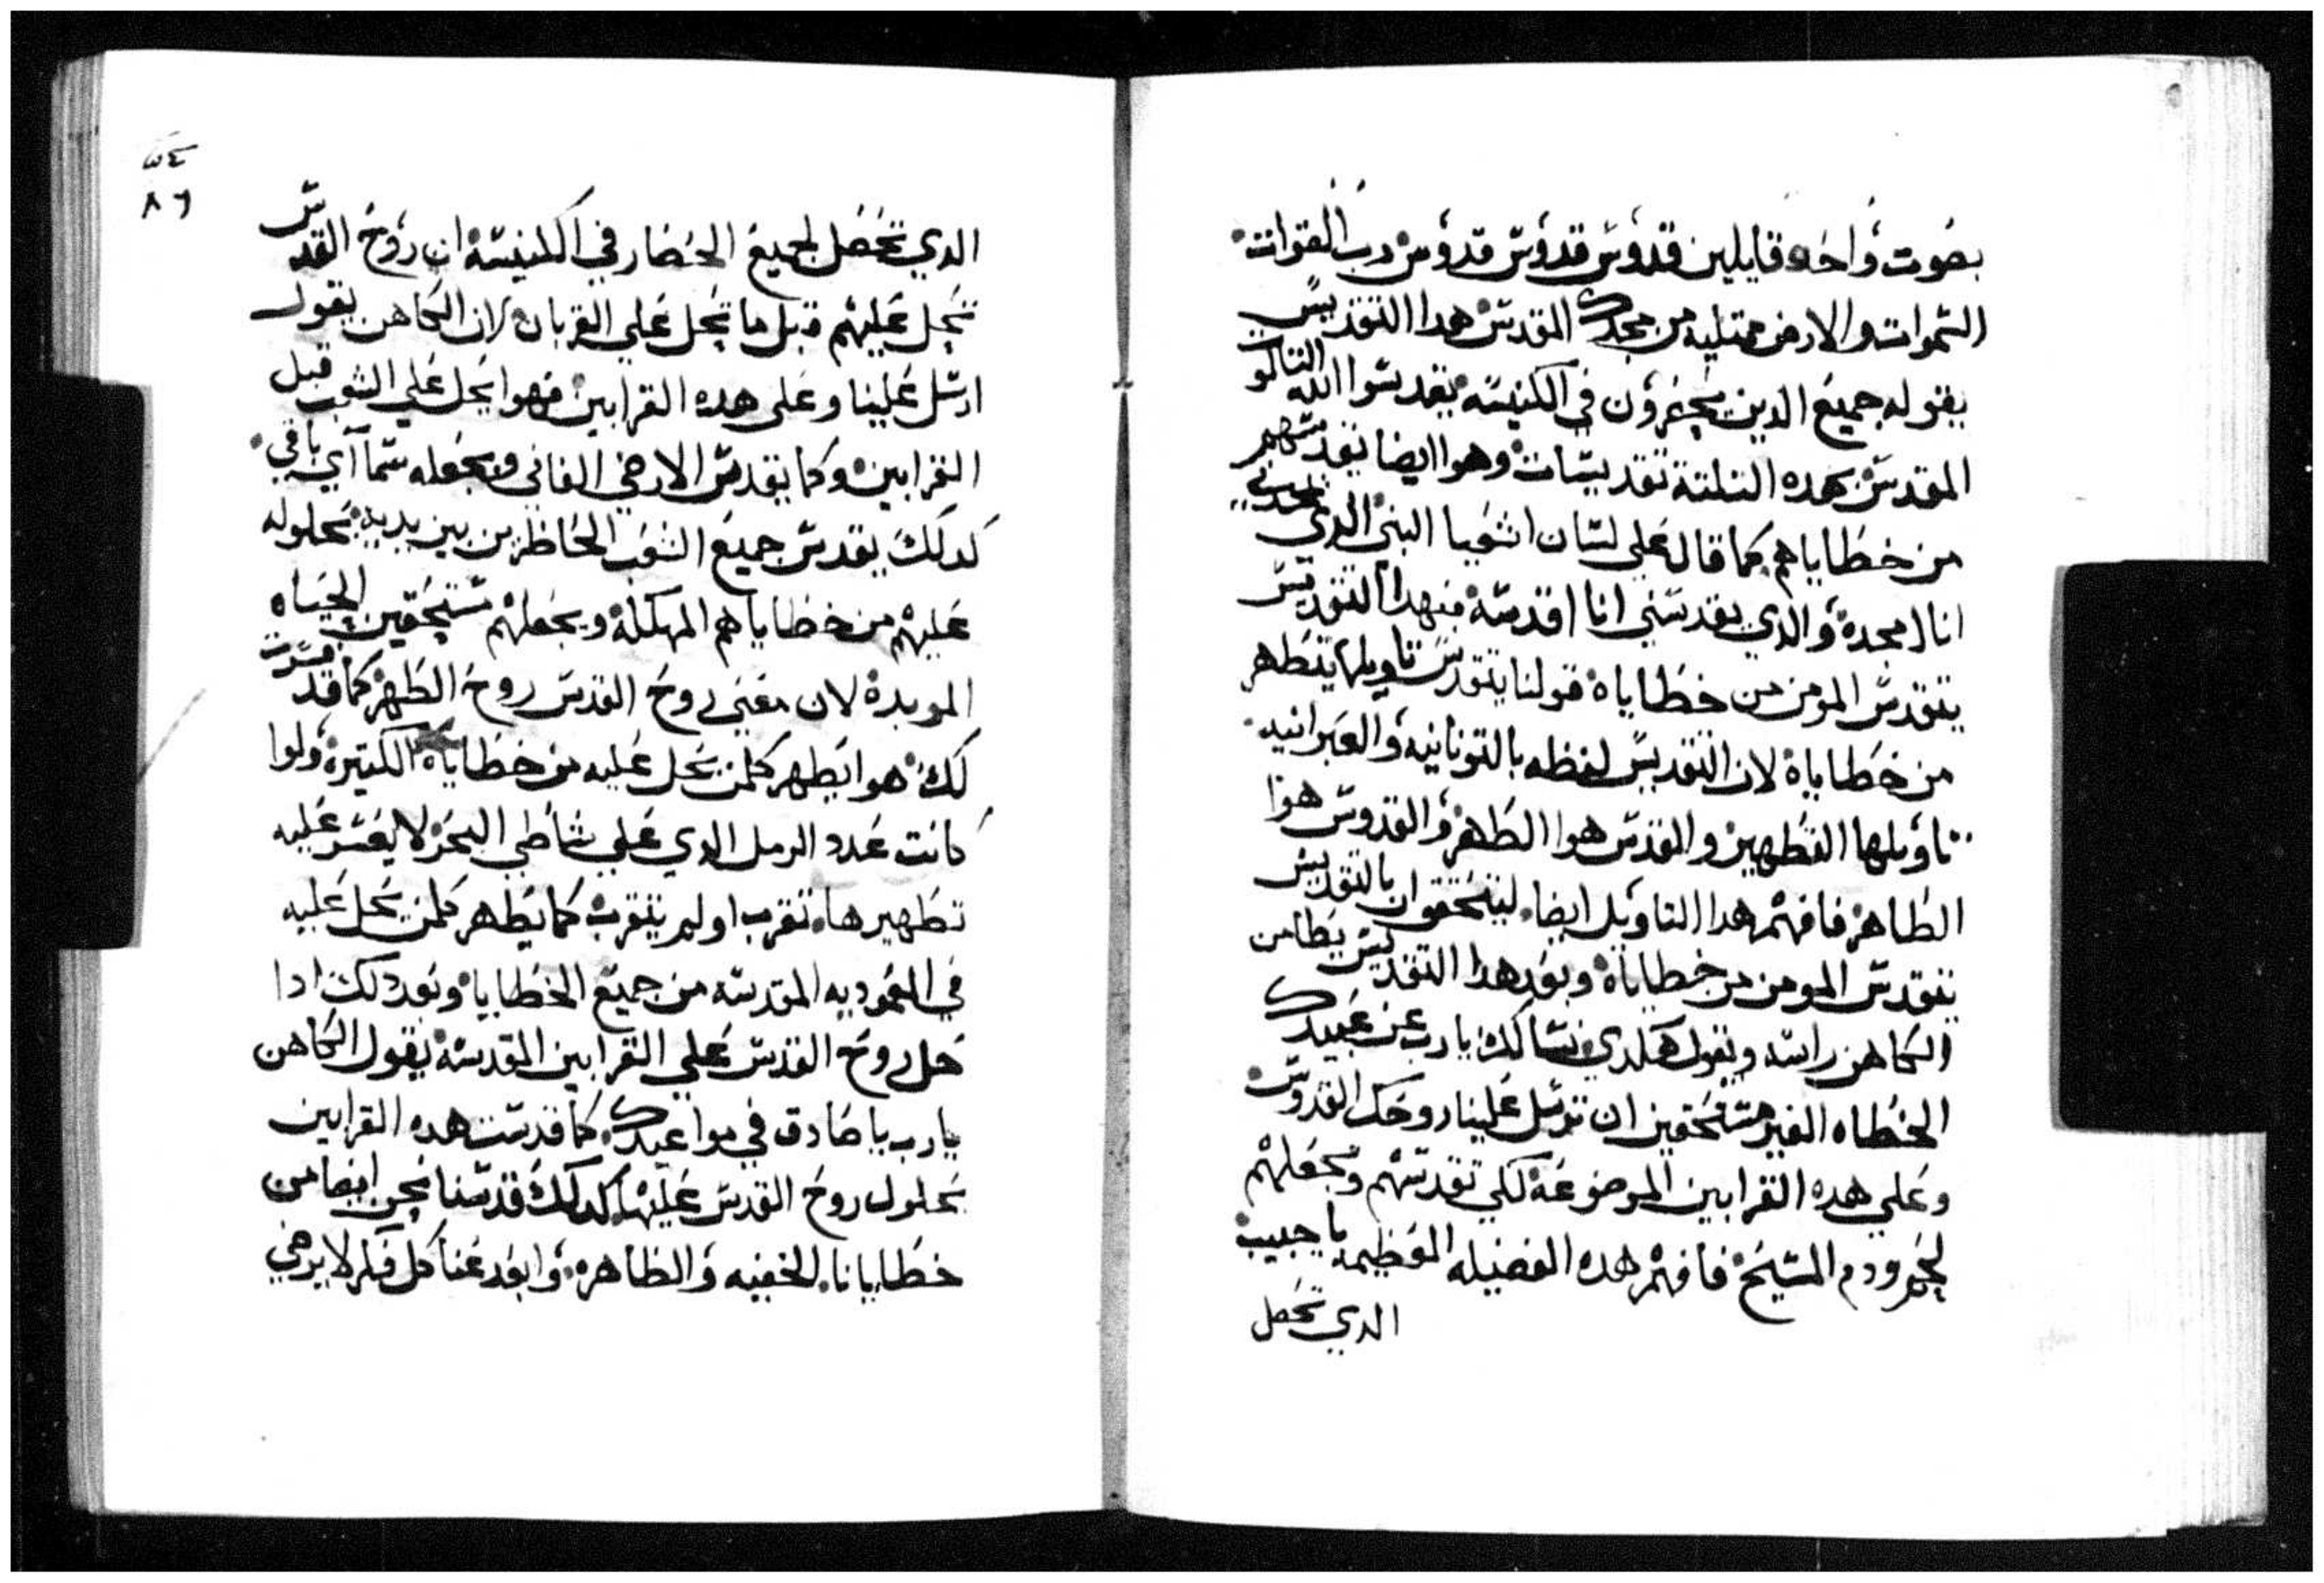 بصوت واحد قايلين قدوس قدوس قدوس رب القوات
السموات والارض ممتليه من مجدك المقدس هدا التقديس
يقوله جميع الدين يحضرون في الكنيسه يقدسوا الله التالوت
المقدس بهده التلتة تقديسات وهوا ايضا يقدسهم
من خطاياهم كما قال علي لسان اشعيا النبي الدي يمجدني
انا امجدة والدي يقدسني انا اقدسة فبهدا التقديس
يتقدس المومن من خطاياة قولنا يتقدس تاويلها يتطهر
من خطاياة لان التقديس لفظه باليونانيه والعبرانيه
تاويلها التطهير والقدس هوا الطهر والقدوس هوا
الطاهر فافهم هدا التاويل ايضا ليتحقق ان بالتقديس
يتقدس المومن من خطاياة وبعد هدا التقديس يطامن
الكاهن راسه ويقول هكدي نسالك يارب عن عبيدك
الخطاه الغير مستحقين ان ترسل علينا روحك القدوس
وعلي هده القرابين الموضوعة لكي تقدسهم وتجعلهم
لحم ودم المسيح فافهم هده الفضيله العظيمه يا حبيب
الدي تحصل
٨٦
الدي تحصل لجميع الحضار في الكنيسة ان روح القدس
تحل عليهم قبل ما تحل علي القربان لان الكاهن يقول
ارسل علينا وعلى هده القرابين فهوا يحل علي الشعب قبل
القرابين وكما يقدس الارضي الفاني ويجعله سمآآي باقي
كدلك يقدس جميع الشعب الحاظرين بين يديه بحلوله
عليهم من خطاياهم المهلكة ويجعلهم مستحقين الحياه
الموبدة لان معني روح القدس روح الطهر كما قد فسرت
لك هوا يطهر كلمن يحل عليه من خطاياة الكتيرة ولوا
كانت عدد الرمل الدي علي شاطي البحر لا يعسر عليه
تطهيرها تقرب او لم يتقرب كما يطهر كلمن يحل عليه
في المعموديه المقدسه من جميع الخطايا وبعد دلك ادا
حل روح القدس علي القرابين المقدسة يقول الكاهن
يارب يا صادق في مواعيدك كما قدست هده القرابين
بحلول روح القدس عليها كدلك قدسنا نحن ايضا من
خطايانا الخفيه والظاهرة وابعد عنا كل فكر لا يرضي